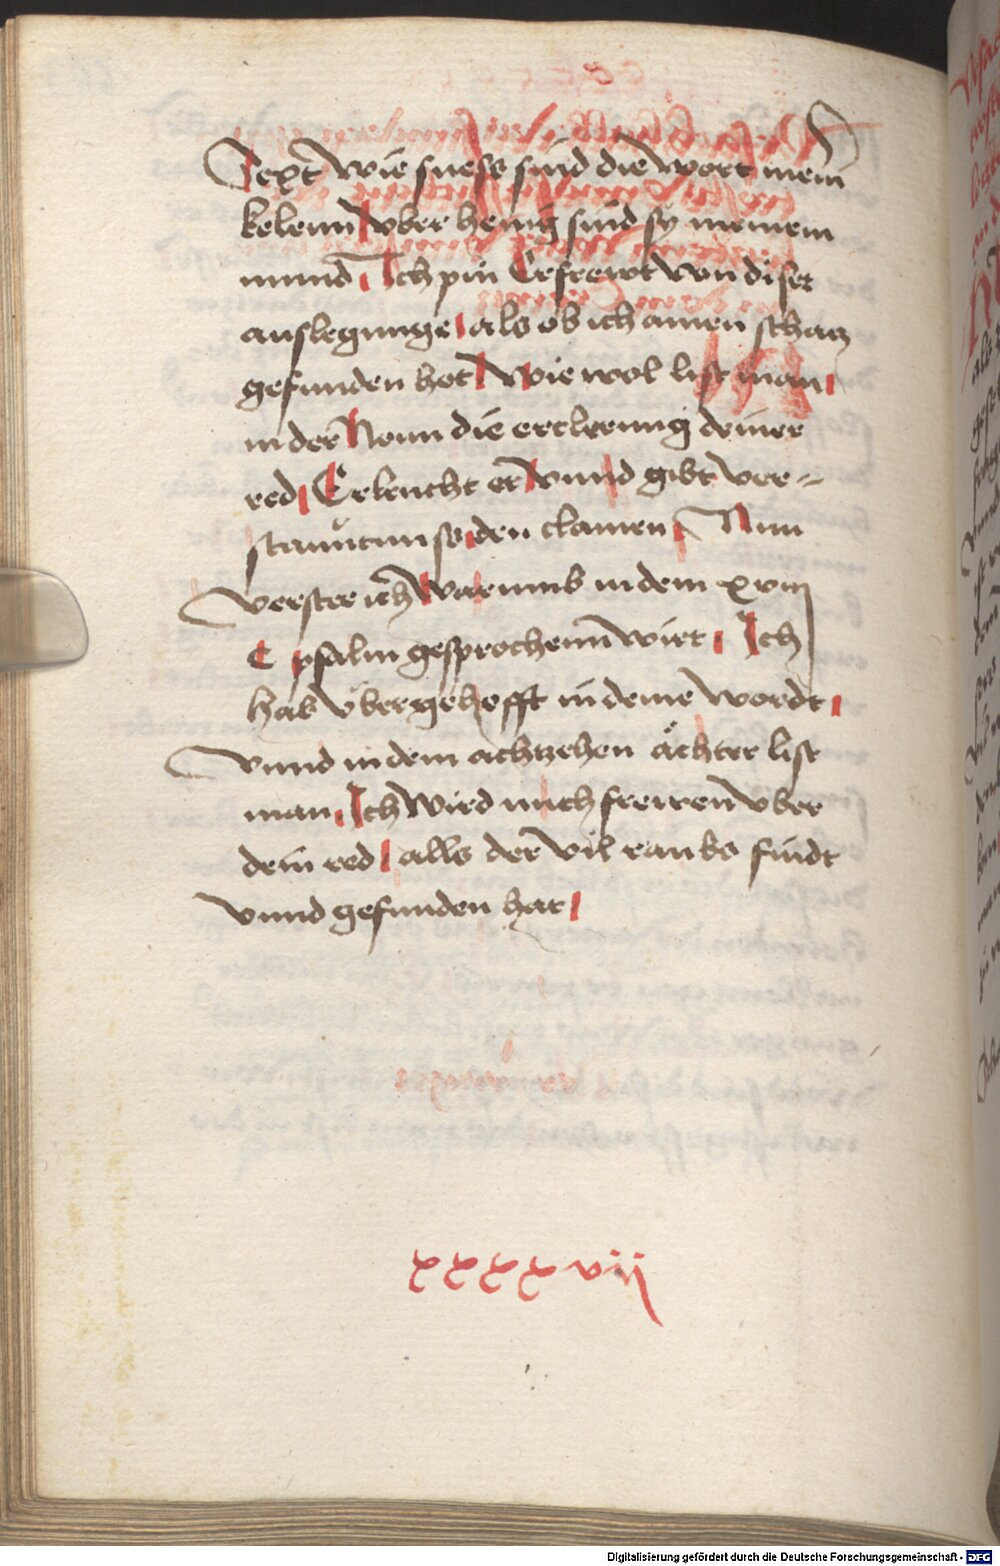 Text wie suess sind die wort mein̄
kelenn vber henig sind sy meinem
mund Ich pin Erfrewt von diser
auslegunge als ob ich ainen schatz
gefunden het Wie wol list man
in der Nonn die erclerung deiner
red Erleucht er vnnd gibt ver=
den clainen Nun
verstee ich warumb in dem xviij
C psalm gesprochenn wirt Ich
hab vber gehofft in deine wordt
vnnd in dem achtzehen achter list
man Ich wird mich freiren vber
dein red alls der vil raubs findt
vnnd gefunden hat
xxxxvij
Digitalisierung gefördert durch die Deutsche Forschungsgemeinschaft - DFG